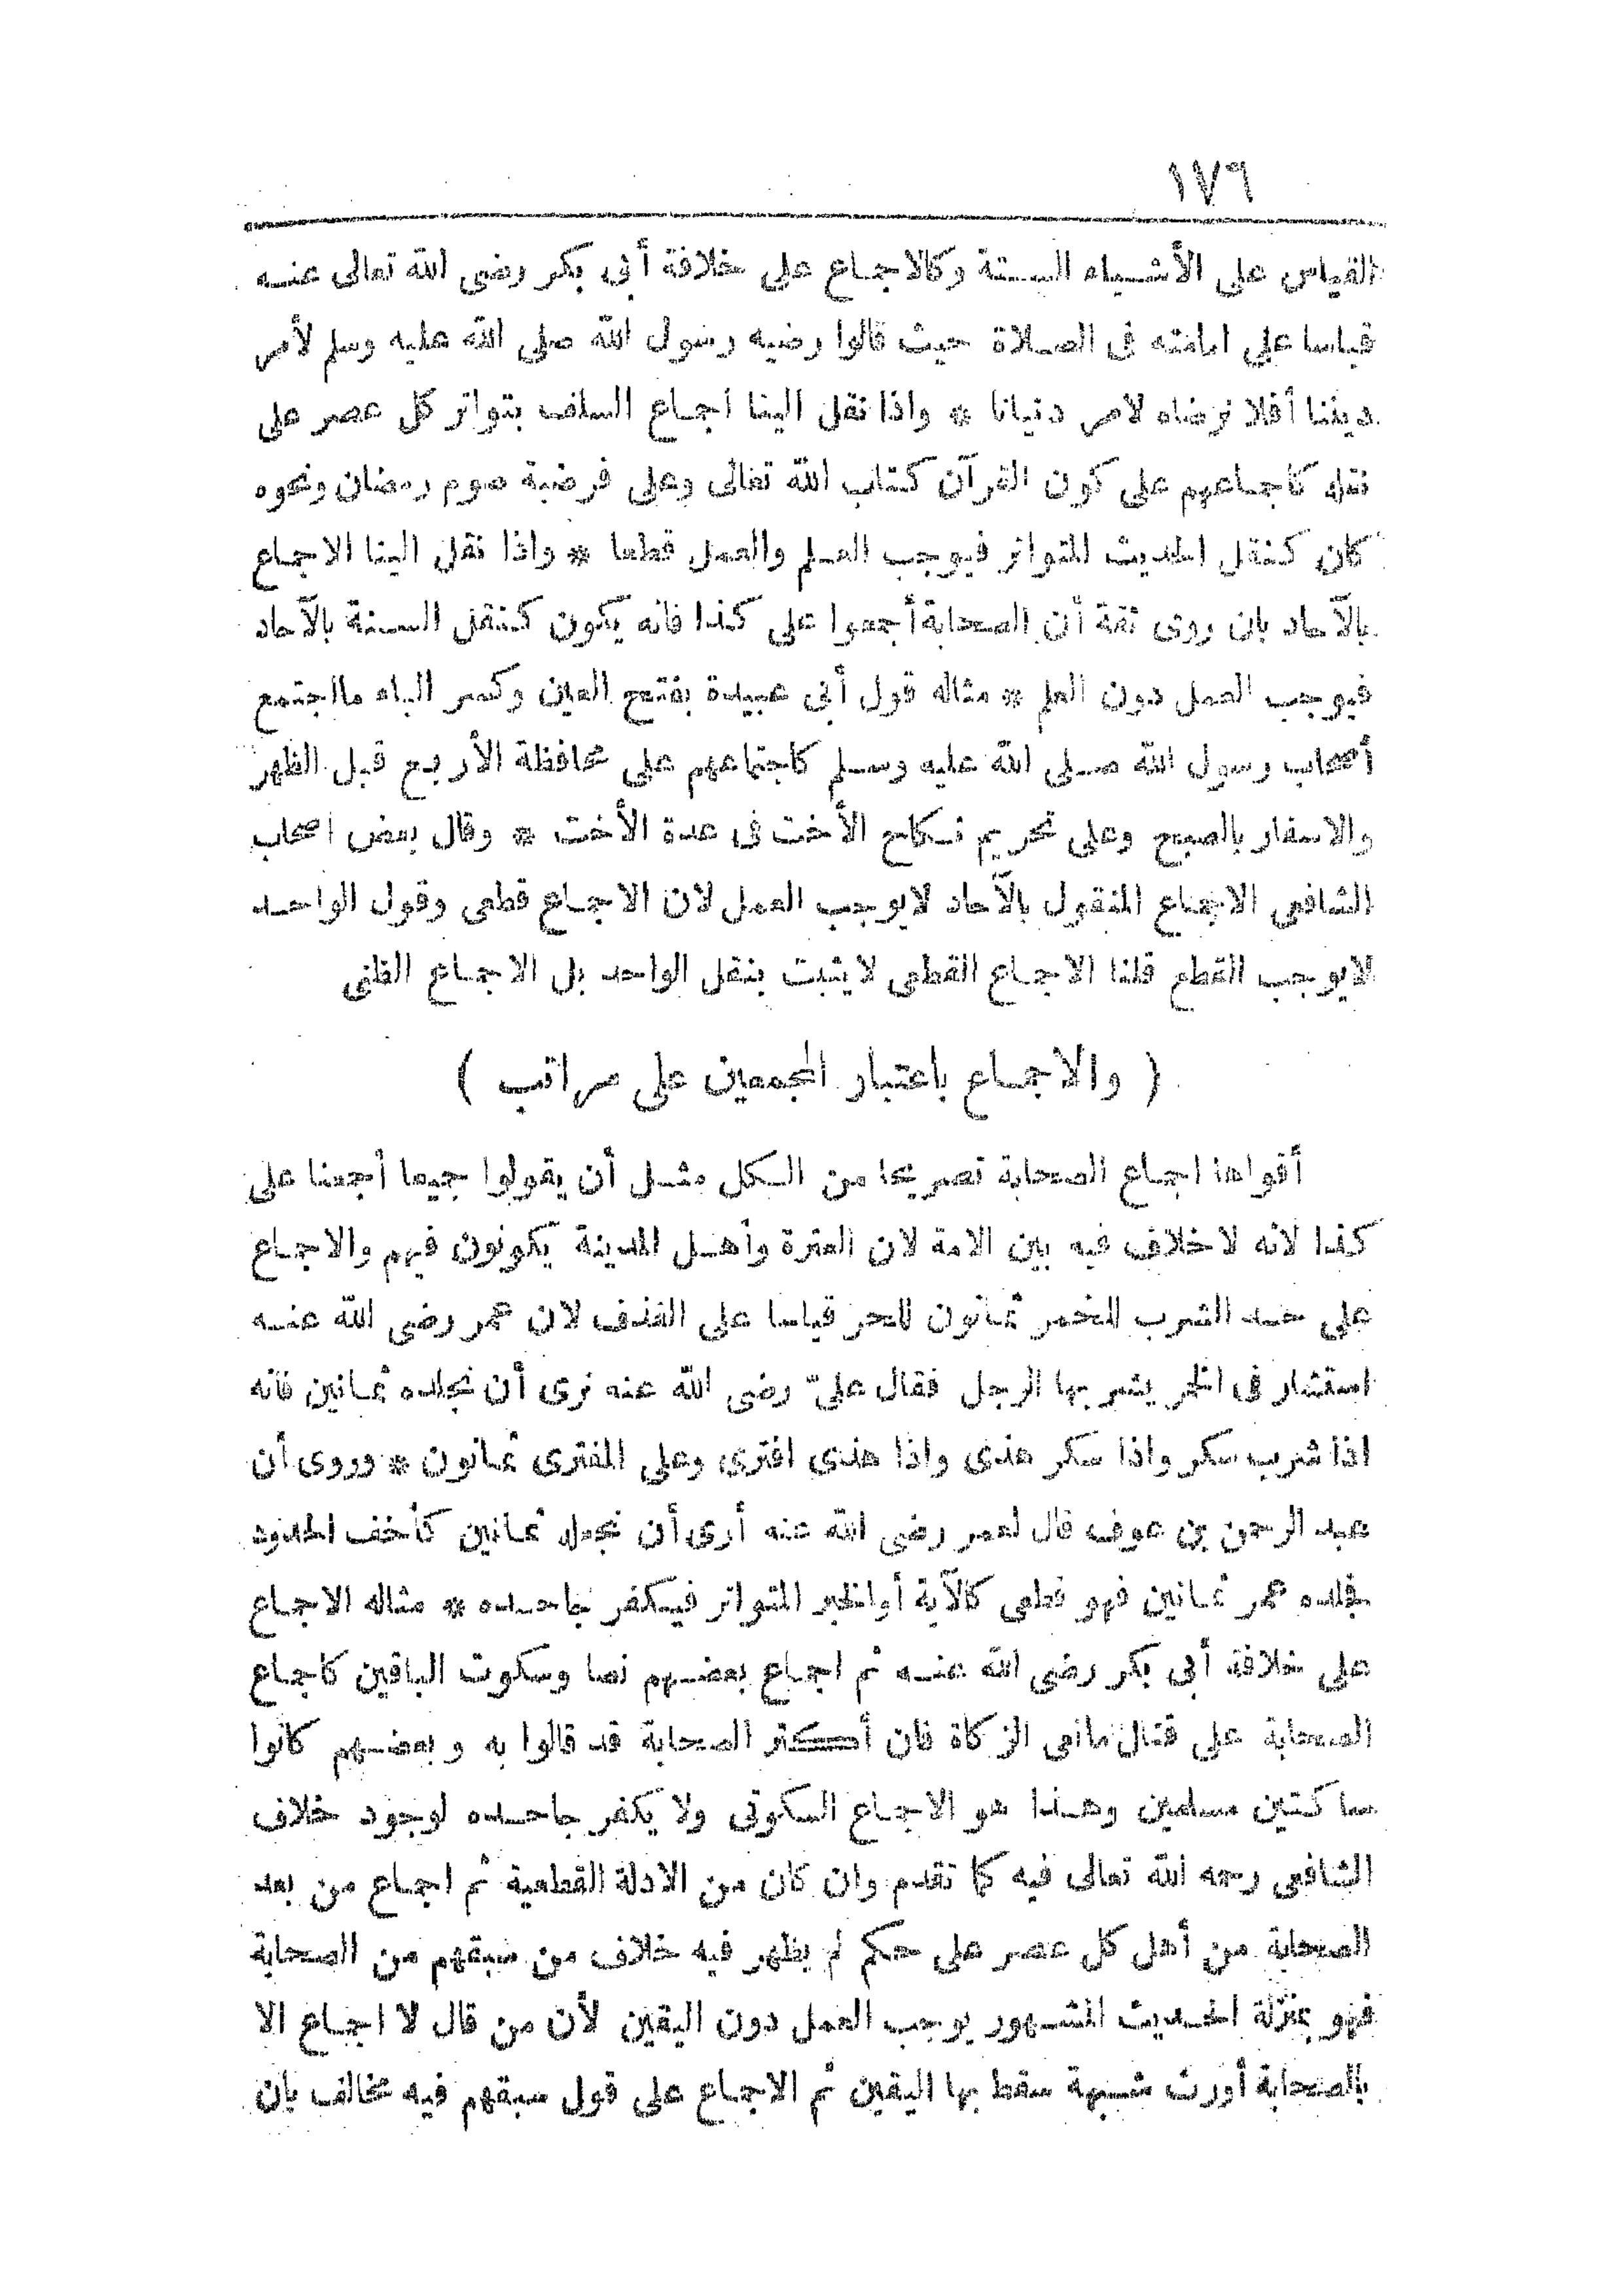 ١٧٦
القياس على الأشياء الستة وكالاجماع على خلافة أبى بكر رضى الله تعالى عنه
قياسا على امامته فى الصلاة حيث قالوا رضيه رسول الله صلى الله عليه وسلم لأمر
ديننا أفلا نرضاه لامر دنيانا * واذا نقل الينا اجماع السلف بتواتر كل عصر على
نقله كاجماعهم على كون القرآن كتاب الله تعالى وعلى فرضية صوم رمضان ونحوه
كان كنقل الحديث المتواتر فيوجب العلم والعمل قطعا * واذا نقل الينا الاجماع
بالآحاد بان روى ثقة أن الصحابة أجمعوا على كذا فانه يكون كنقل السنة بالآحاد
فيوجب العمل دون العلم * مثاله قول أبى عبيدة بفتح العين وكسر الباء مااجتمع
أصحاب رسول الله صلى الله عليه وسلم كاجتماعهم على محافظة الأربع قبل الظهر
والاسفار بالصبح وعلى تحريم نكاح الأخت فى عدة الأخت * وقال بعض اصحاب
الشافعى الاجماع المنقول بالآحاد لايوجب العمل لان الاجماع قطعى وقول الواحد
لايوجب القطع قلنا الاجماع القطعى لايثبت بنقل الواحد بل الاجماع الظنى
( والاجماع باعتبار المجمعين على مراتب )
أقواها اجماع الصحابة تصريحا من الكل مثل أن يقولوا جيعا أجمعنا على
كذا لانه لاخلاف فيه بين الامة لان العترة وأهل المدينة يكونون فيهم والاجماع
على حد الشرب للخمر ثمانون للحر قياسا على القذف لان عمر رضى الله عنه
استشار فى الخمر يشربها الرجل فقال علىّ رضى الله عنه نرى أن نجلده ثمانين فانه
اذا شرب سكر واذا سكر هذى واذا هذى افترى وعلى المفترى ثمانون * وروى أن
عبد الرحمن بن عوف قال لعمر رضى الله عنه أرى أن نجعله ثمانين كأخف الحدود
فجلده عمر ثمانين فهو قطعى كالآية أوالخبر المتواتر فيكفر جاحده * مثاله الاجماع
على خلافة أبى بكر رضى الله عنه ثم اجماع بعضهم نصا وسكوت الباقين كاجماع
الصحابة على قتال مانعى الزكاة فان أكثر الصحابة قد قالوا به وبعضهم كانوا
ساكتين مسلمين وهذا هو الاجماع السكوتى ولا يكفر جاحده لوجود خلاف
الشافعى رحمه الله تعالى فيه كما تقدم وان كان من الادلة القطعية ثم اجماع من بعد
الصحابة من أهل كل عصر على حكم لم يظهر فيه خلاف من سبقهم من الصحابة
فهو بمنزلة الحديث المشهور يوجب العمل دون اليقين لأن من قال لا اجماع الا
بالصحابة أورث شبهة سقط بها اليقين ثم الاجماع على قول سبقهم فيه مخالف بان